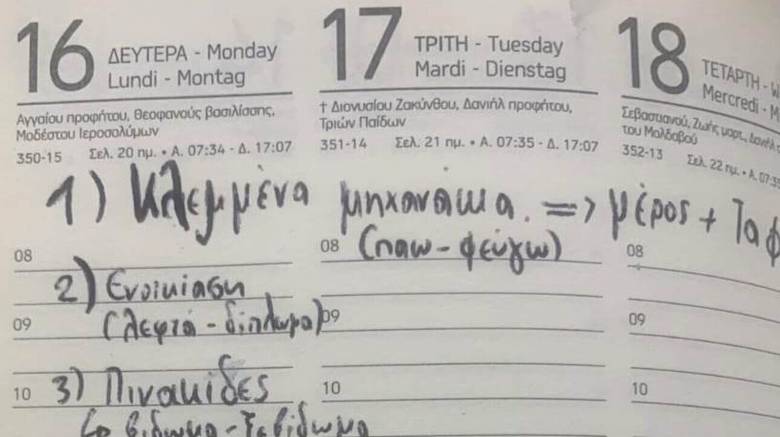 16 ΔΕΥΤΕΡΑ - Monday
Lundi - Montag
Αγγαίου προφήτου, Θεοφανούς βασιλίσσης,
Μοδέστου Ιεροσολύμων
350-15 Σελ. 20 ημ. • Α. 07:34 - Δ. 17:07
17 ΤΡΙΤΗ - Tuesday
Mardi - Dienstag
† Διονυσίου Ζακύνθου, Δανιήλ προφήτου,
Τριών Παίδων
351-14 Σελ. 21 ημ. • Α. 07:35 - Δ. 17:07
18 ΤΕΤΑΡΤΗ - W
Mercredi - M
Σεβαστιανού, Ζωής μαρτ., Δανιήλ
του Μολδαβού
352-13 Σελ. 22 ημ. • Α. 07:35
1) Κλεμμένα μηχανάκια. => μέρος + Τα φ
08 08 (παω - φεύγω) 08
2) Ενοικίαση
09 (λεφτά - δίπλωμα) 09 09
10 3) Πινακίδες 10 10
βιδωμα - ξεβίδωμα